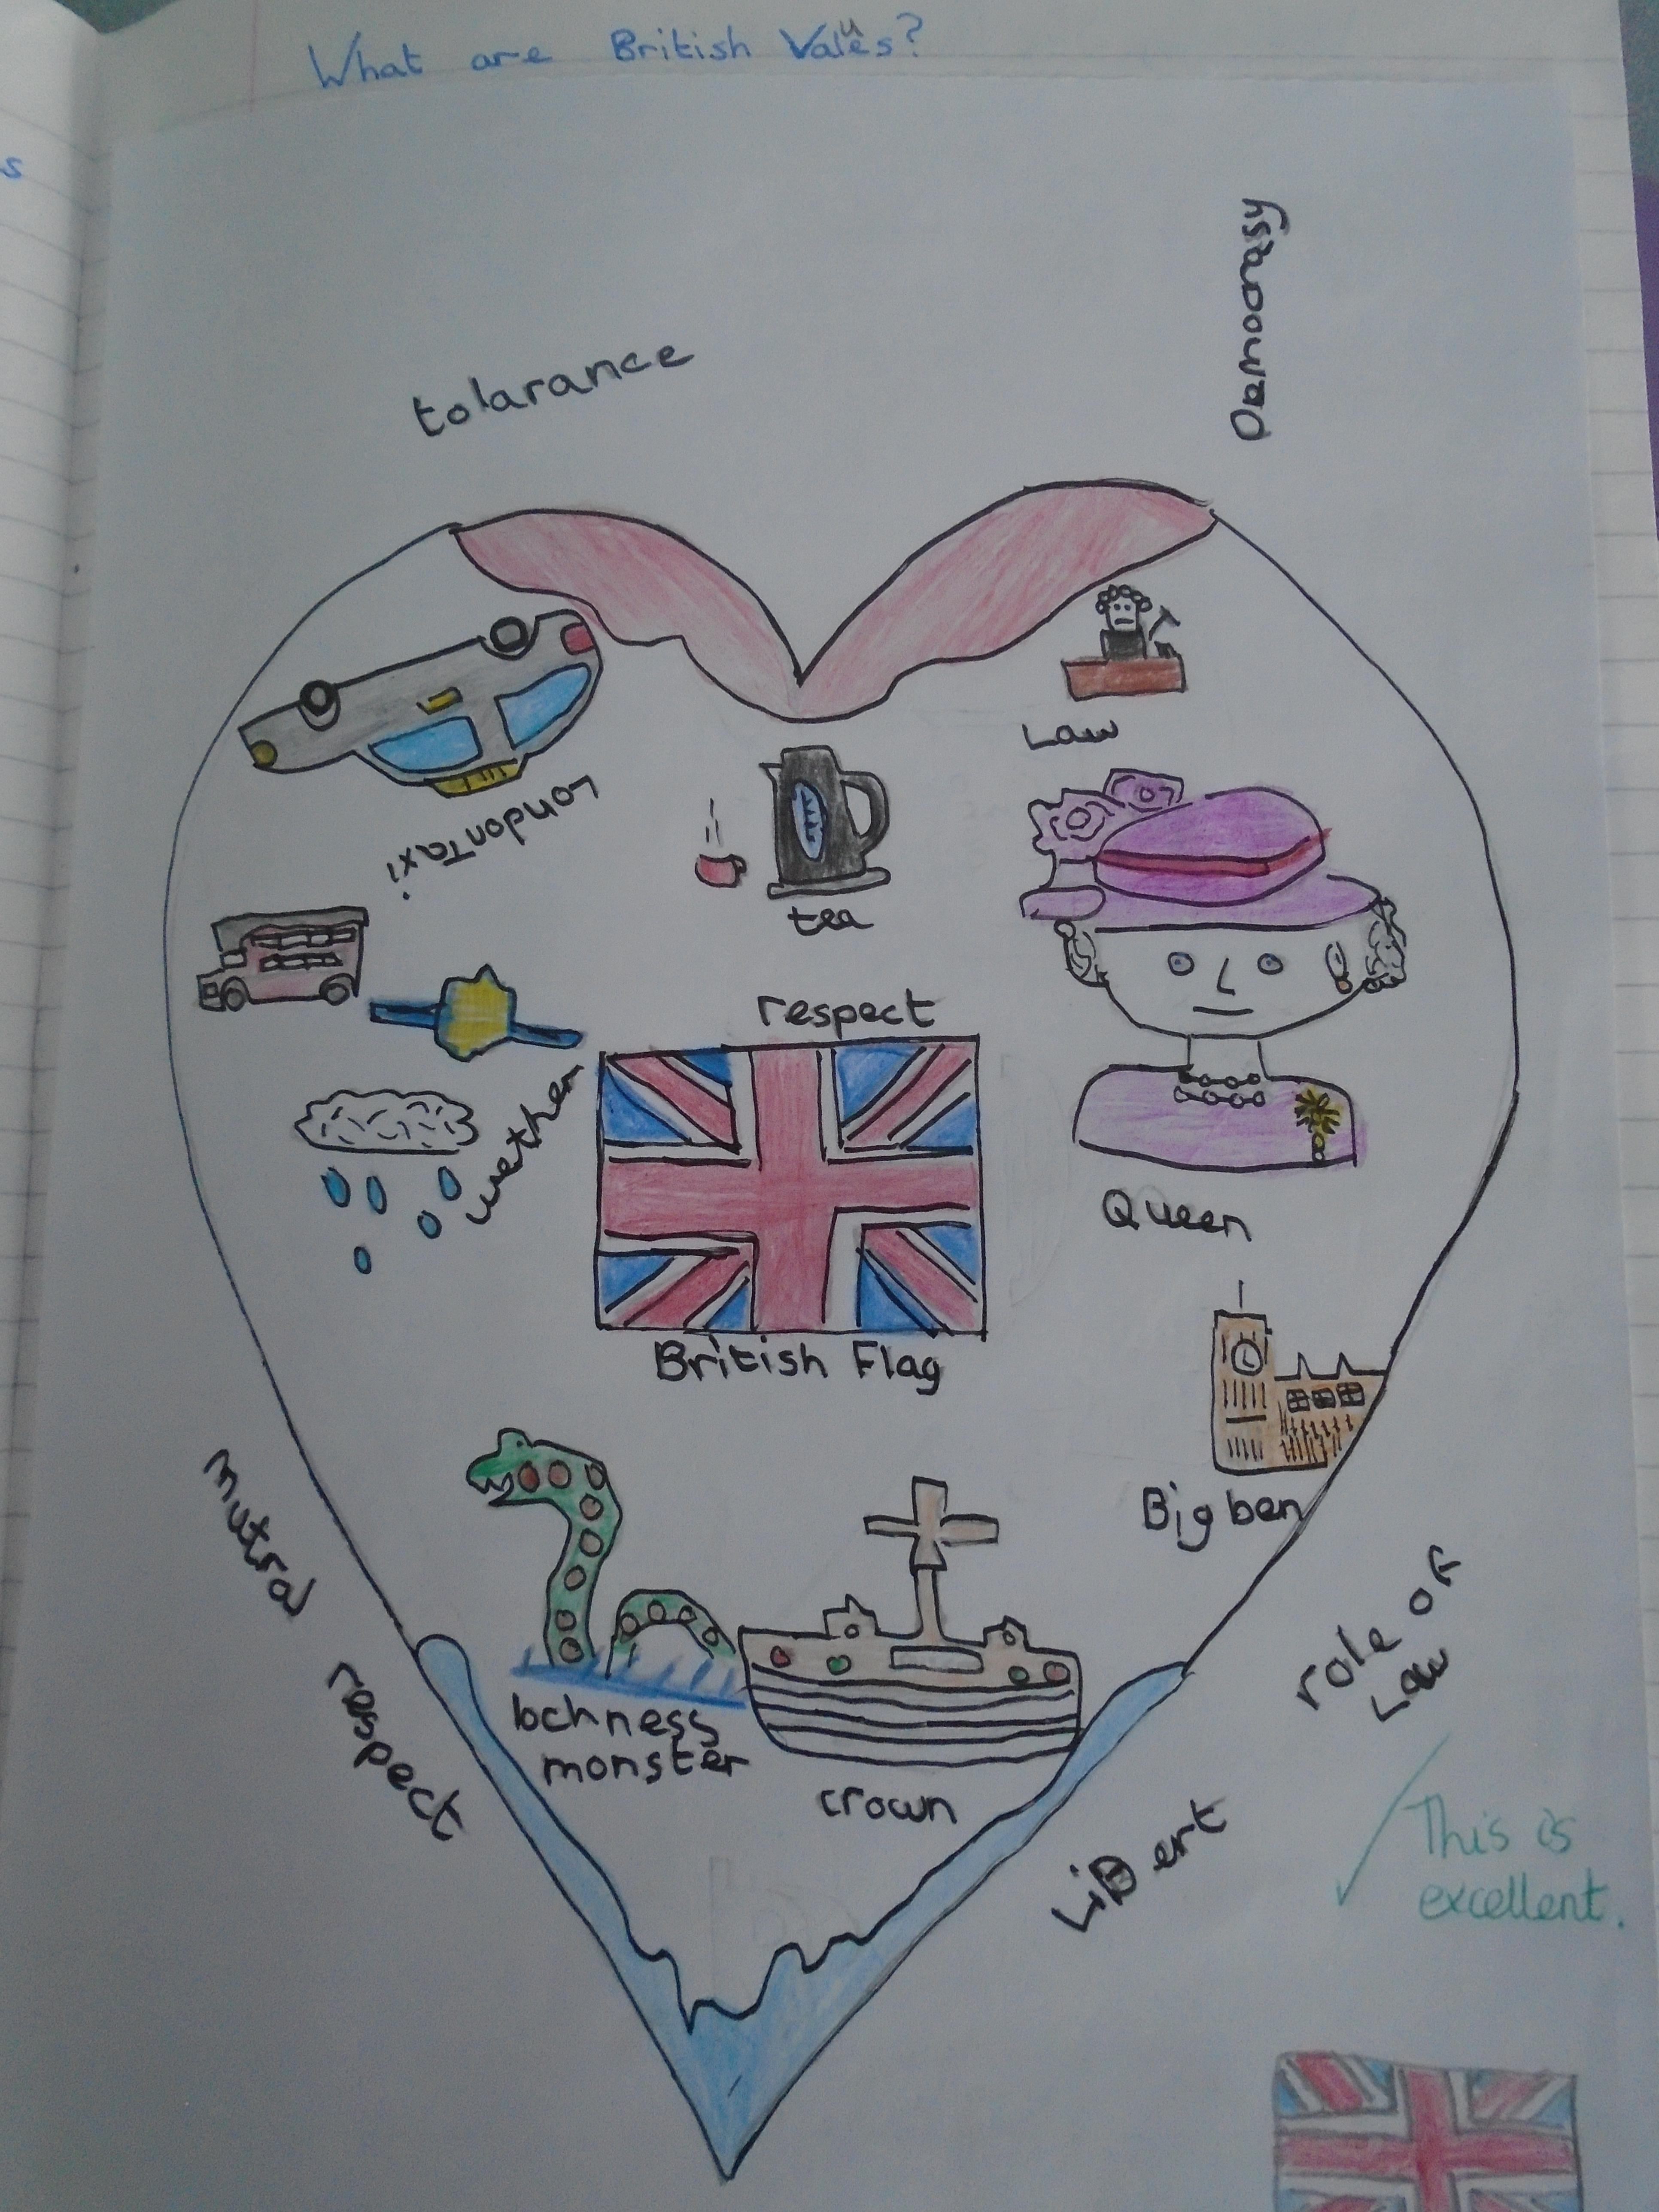 What are British Values?
s
tolarance
Damocrasy
Law
London Taxi
tea
respect
wether
Queen
British Flag
Big ben
mutral respect
role of
Law
lochness
monster
crown
LiBert
This is
excellent.